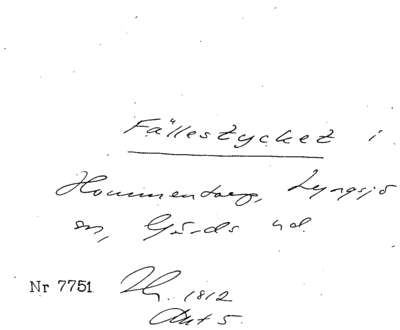 Fällestycket i
Hommentorp, Lyngsjö
sn, Gärds hd.
Nr 7751
1812
Akt 5.